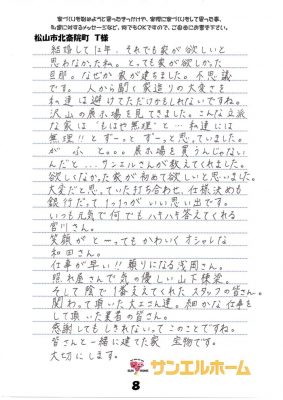 家づくりを始めようと思ったきっかけや、実際に家づくりをして思った事、
松山市北斎院町 T様
結婚して12年、それでも家が欲しいと
思わなかった私。とっても家が欲しかった
旦那。なぜか家が建ちました。不思議
です。人から聞く家造りの大変さを
私達は避けてただけかもしれないですね。
沢山の展示場を見てきました。こんな立派
な家は"もはや無理"と…私達には
無理!!とずーっとずーっと思っていました。
が ふと。。。展示場を買うんじゃない
んだと…サンエルさんが教えてくれました。
欲しくなかった家が初めて欲しいと思いました。
大変だと思っていた打ち合わせ、仕様決めも
銀行だって1つ1つがいい思い出です。
いつも元気で何でもハキハキ答えてくれる
宮川さん。
笑顔がと〜ってもかわいくオシャレな
和田さん。
仕事が早い!!頼りになる浅岡さん。
照れ屋さんで気の優しい山下棟梁。
そして陰で1番支えてくれたスタッフの皆さん。
関わって頂いた大工さん達。細かな仕事を
して頂いた業者の皆さん。
感謝してもしきれないってこのことですね。
皆さんと一緒に建てた家 宝物です。
大切にします。
サンエルホーム
8